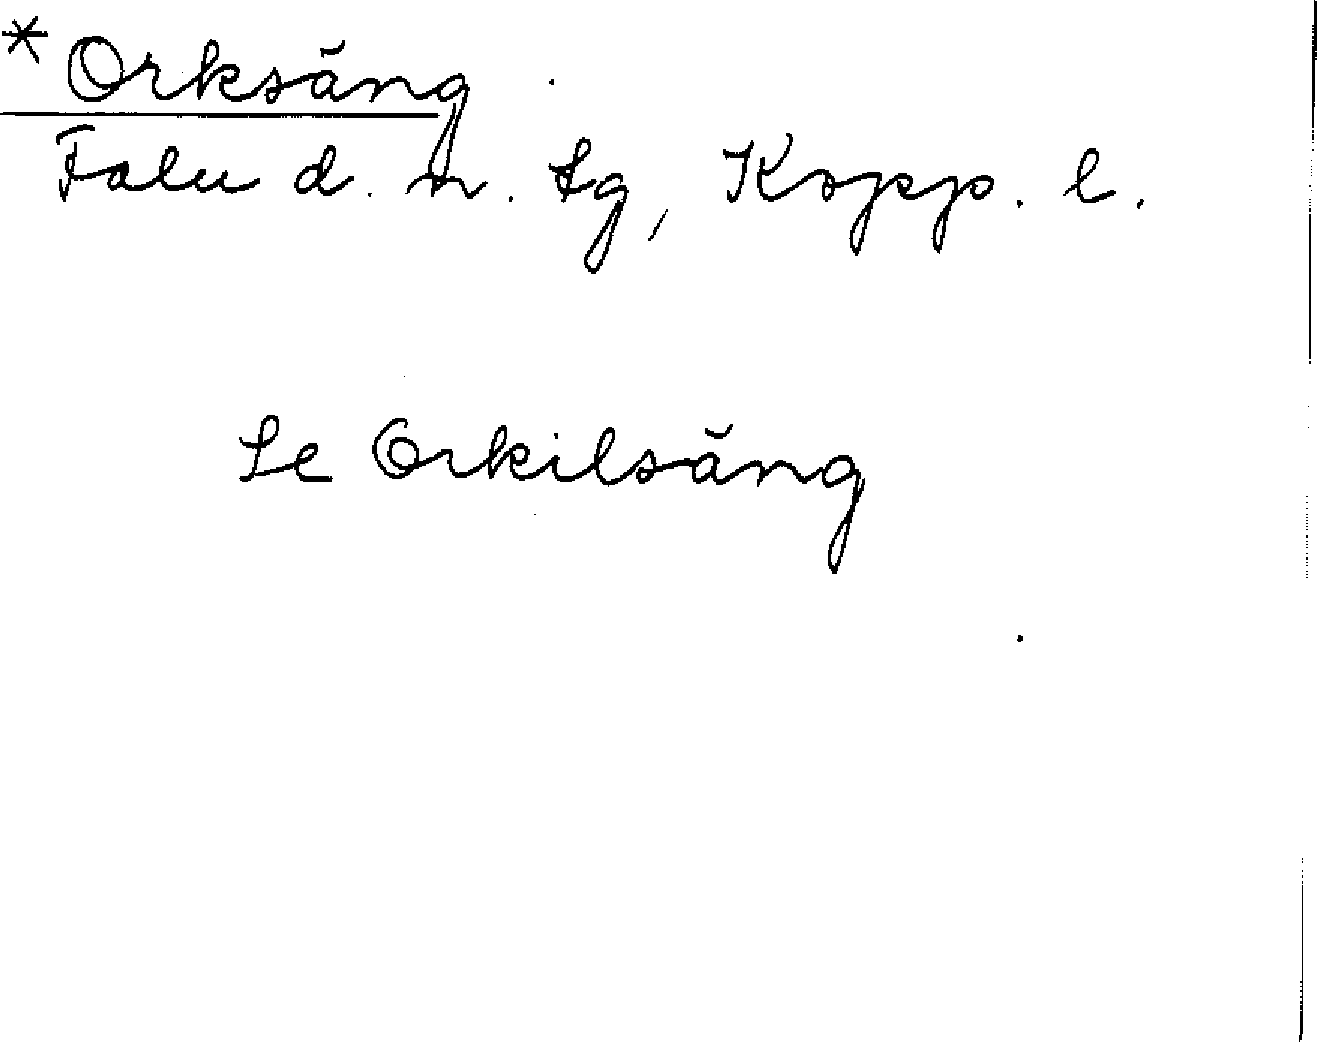 * Orksäng
Falu d. n. tg, Kopp. l.
Se Orkilsäng